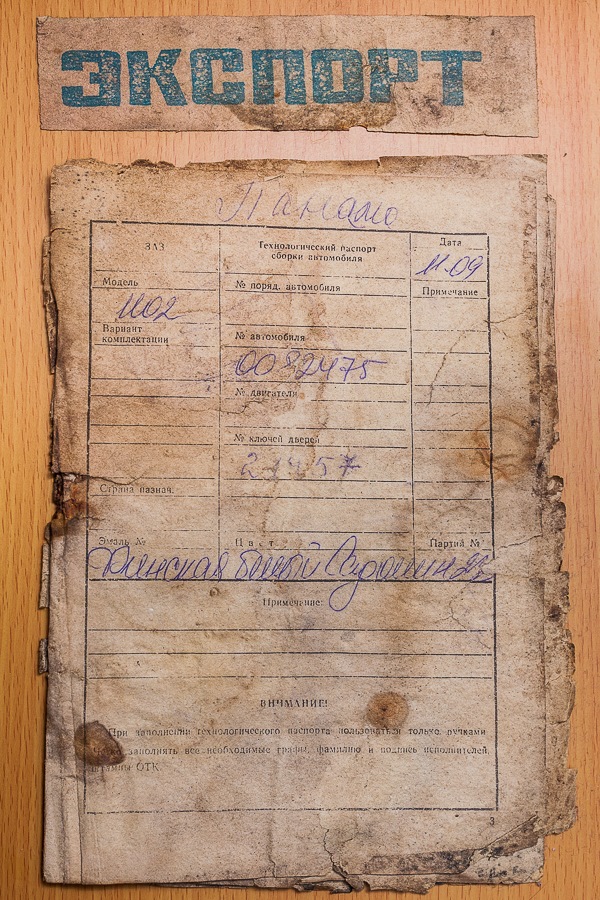 ЭКСПОРТ
Панамо
ЗАЗ
Технологический паспорт
сборки автомобиля
Дата
11.09
Модель
№ поряд. автомобиля
Примечание
1102
Вариант
комплектации
№ автомобиля
0082475
№ двигателя
№ ключей дверей
Страна назнач.
Эмаль №
Цвет
Партий №
Финская белый
Примечание:
ВНИМАНИЕ!
При заполнении технологического паспорта пользоваться только ручками
заполнять все необходимые графы, фамилию и подпись исполнителей,
штампы ОТК.
3